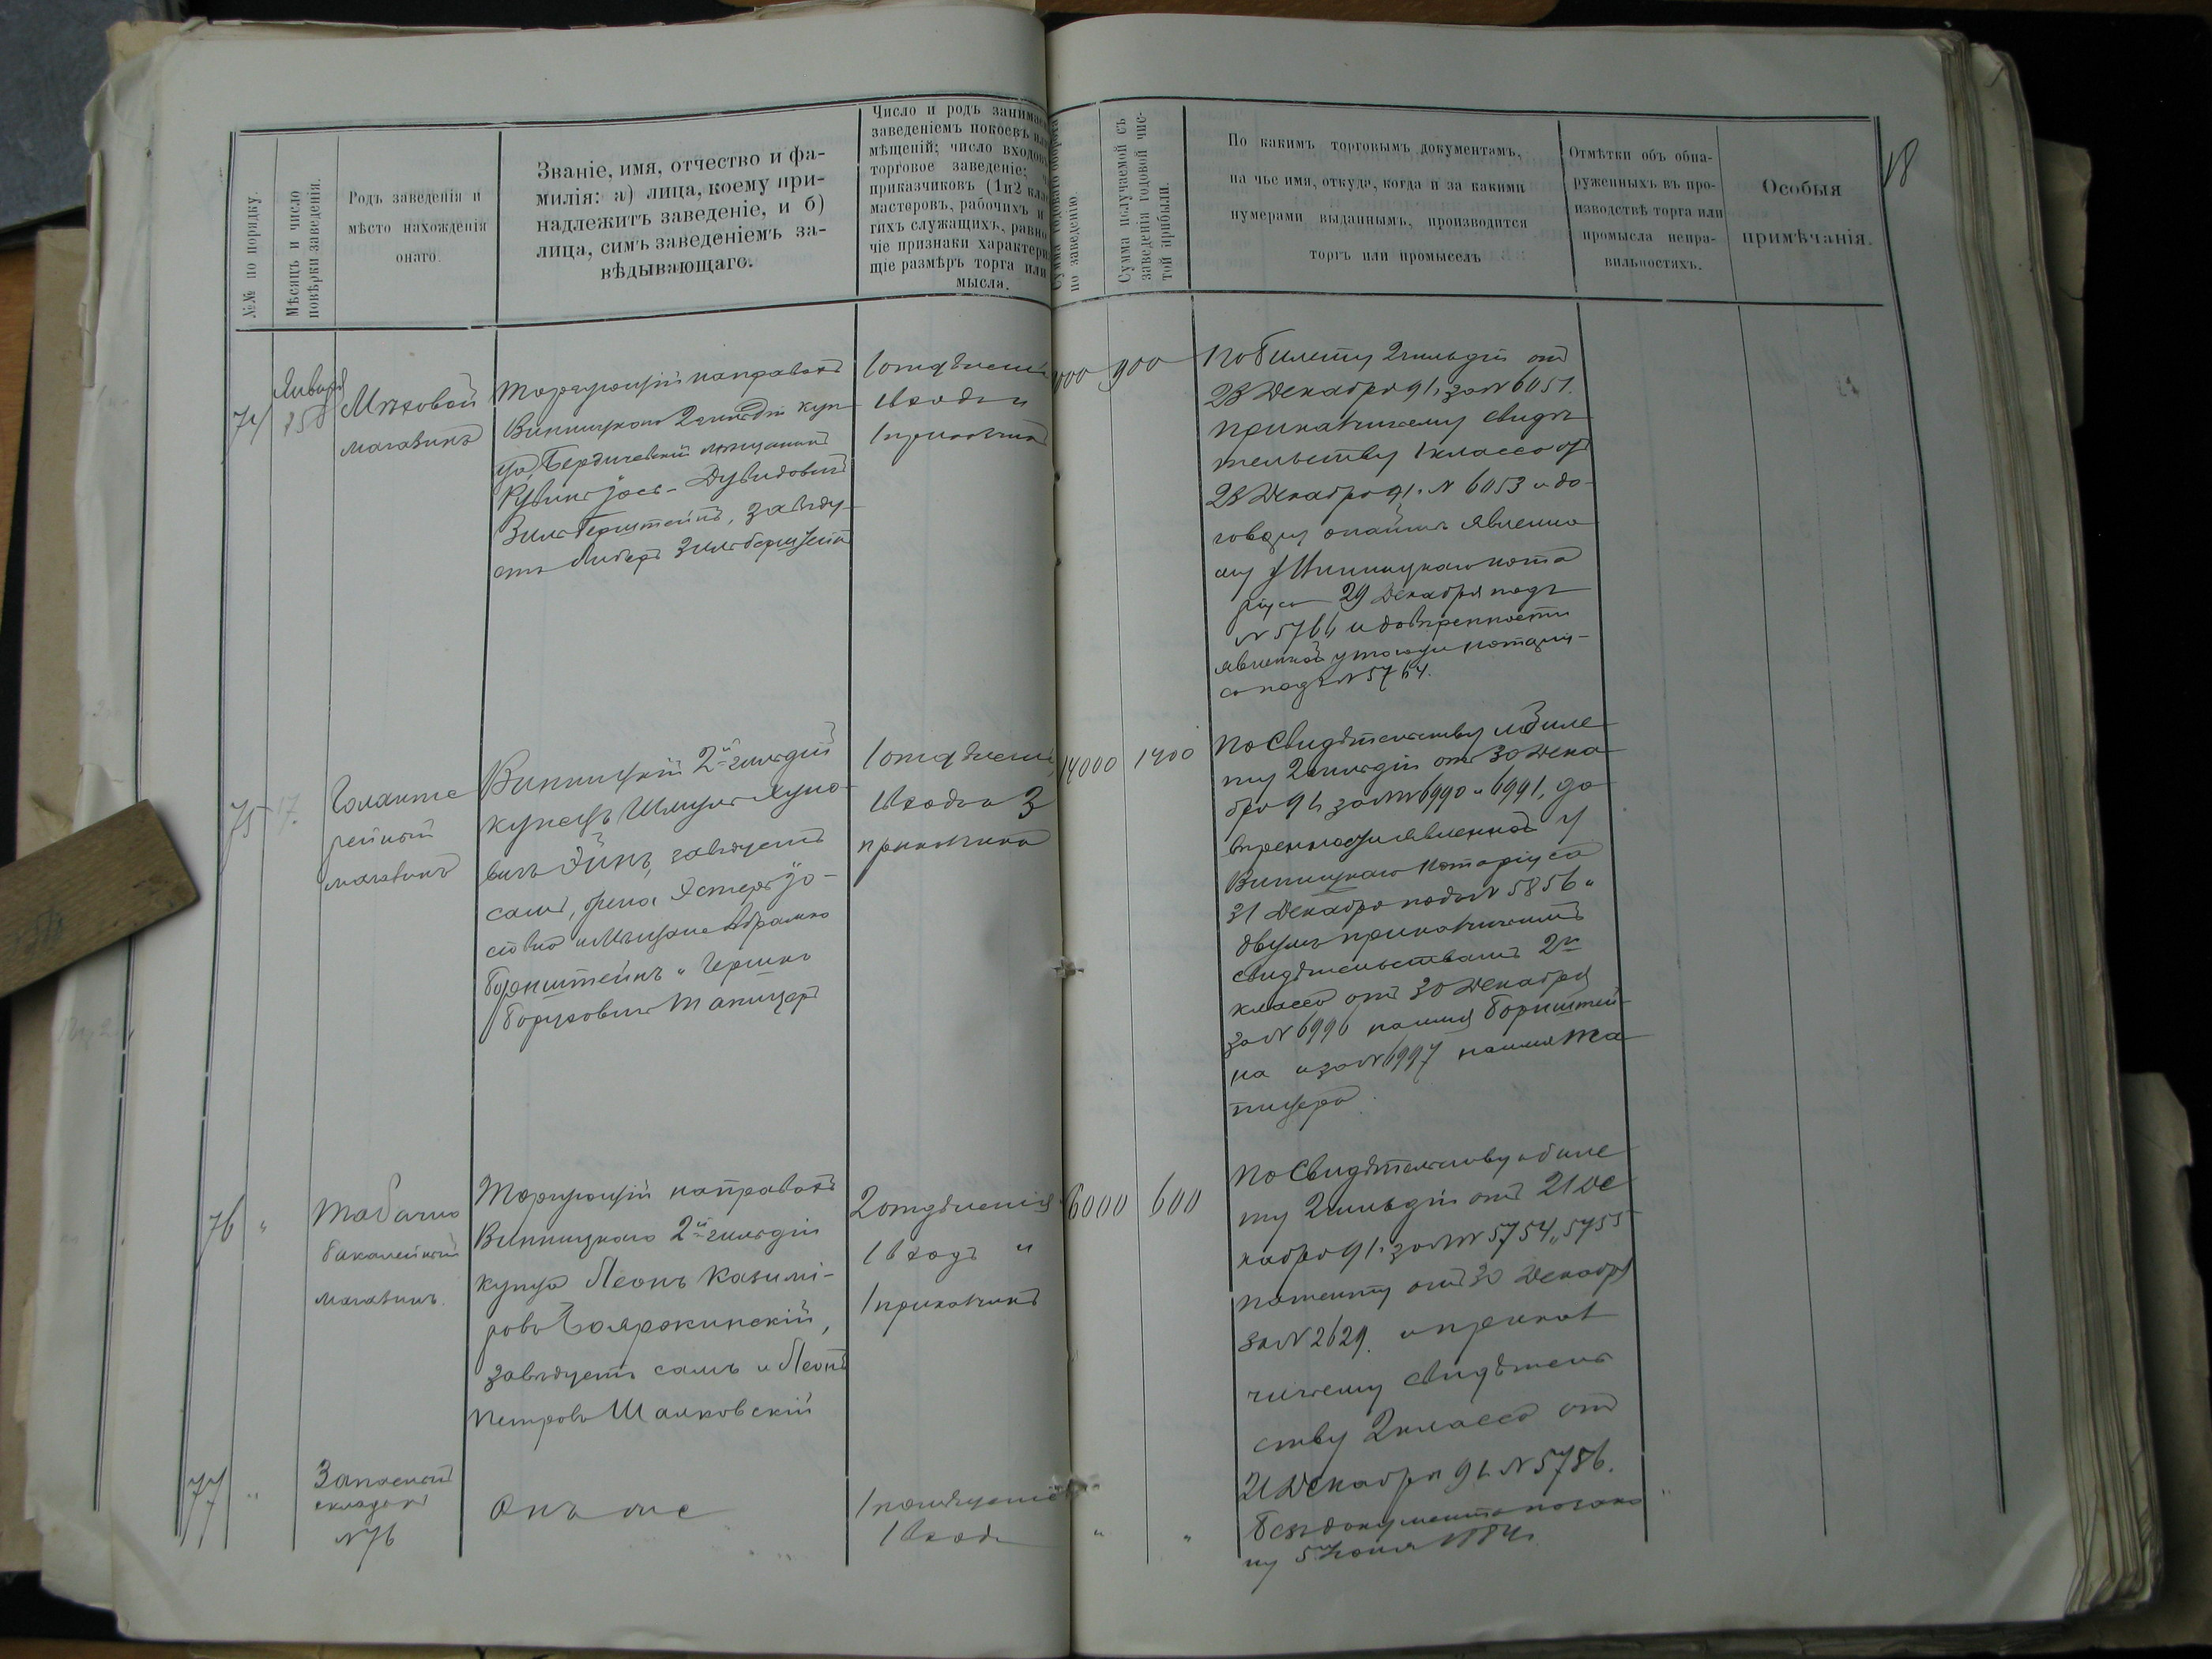 18
№№ по порядку.
Мѣсяцъ и число
повѣрки заведенія.
Родъ заведенія и
мѣсто нахожденія
онаго.
Званіе, имя, отчество и фа-
милія: а) лица, коему при-
надлежитъ заведеніе, и б)
лица, симъ заведеніемъ за-
вѣдывающаго.
Число и родъ занимае
заведеніемъ покоевъ
мѣщеній; число входовъ
торговое заведеніе;
приказчиковъ (1 и 2 клас
мастеровъ, рабочихъ и
гихъ служащихъ, равно
чіе признаки характери
щіе размѣръ торга или
мысла.
Сумма годового оборота
по заведенію.
Сумма получаемой съ
заведенія годовой чис-
той прибыли.
По какимъ торговымъ документамъ,
на чье имя, откуда, когда и за какими
нумерами выданнымъ, производится
торгъ или промыселъ
Отмѣтки объ обна-
руженныхъ въ про-
изводствѣ торга или
промысла непра-
вильностяхъ.
Особыя
примѣчанія.
74
Января
Мѣховой
магазинъ
Торгующій на правахъ
Винницкаго 2 гильдіи куп-
ца, Бердичевскій мѣщанинъ
Рувинъ Іось-Дувидовичъ
Зильберштейнъ, завѣду-
етъ Либеръ Зильберштейнъ
1 отдѣленіе
1 входъ и
1 прикащикъ
900
По билету 2 гильдіи отъ
23 Декабря 91 г. за № 6051.
прикащичьему свидѣ
тельству 1 класса отъ
23 Декабря 91 г. № 6053 и до-
говору о найм явленно
му у Винницкаго нота
ріуса 29 Декабря подъ
№ 5766 и довѣренности
явленной у того же нотаріу-
са подъ № 5764.
75
17.
Галанте
рейный
магазинъ
Винницкій 2й гильдіи
купецъ Шмуль Луно-
вичъ завѣдуетъ
самъ, жена Эстеръ Іо-
сіовна и Мѣщане Абрамко
Боренштейнъ и Гершко
Боруховичъ Тапицеръ
1 отдѣленіе,
1 входъ и 3
прикащика
14000
1400
По Свидѣтельству и биле
ту 2 гильдіи отъ 30 Дека
бря 91 г. за №№ 6990 и 6991, до
вѣренности явленной у
Винницкаго Нотаріуса
31 Декабря подъ № 5856 и
двумъ прикащичьимъ
свидѣтельствамъ 2го
класса отъ 30 Декабря
за № 6996 на имя Борнштей-
на и за № 6997 на имя Та
пицера.
76
"
Табачно
бакалейный
магазинъ.
Торгующій на правахъ
Винницкаго 2й гильдіи
купца Леонъ Казимі-
ровъ
завѣдуетъ самъ и Леонъ
Петровъ Шалковскій
2 отдѣленія
1 входъ и
1 прикащикъ
6000
600
По Свидѣтельству и биле
ту 2 гильдіи отъ 21 Де
кабря 91 г. за №№ 5754, 5755
патенту отъ 30 Декабря
за № 2629. и прикащ
чичьему свидѣтель
ству 2 класса отъ
21 Декабря 91 г. № 5786.
77
"
Запасный
складъ
№ 76
Онъ же
1 помѣщеніе
1 входъ
"
"
Безъ документа по зако
ну 5 Іюня 1884 г.